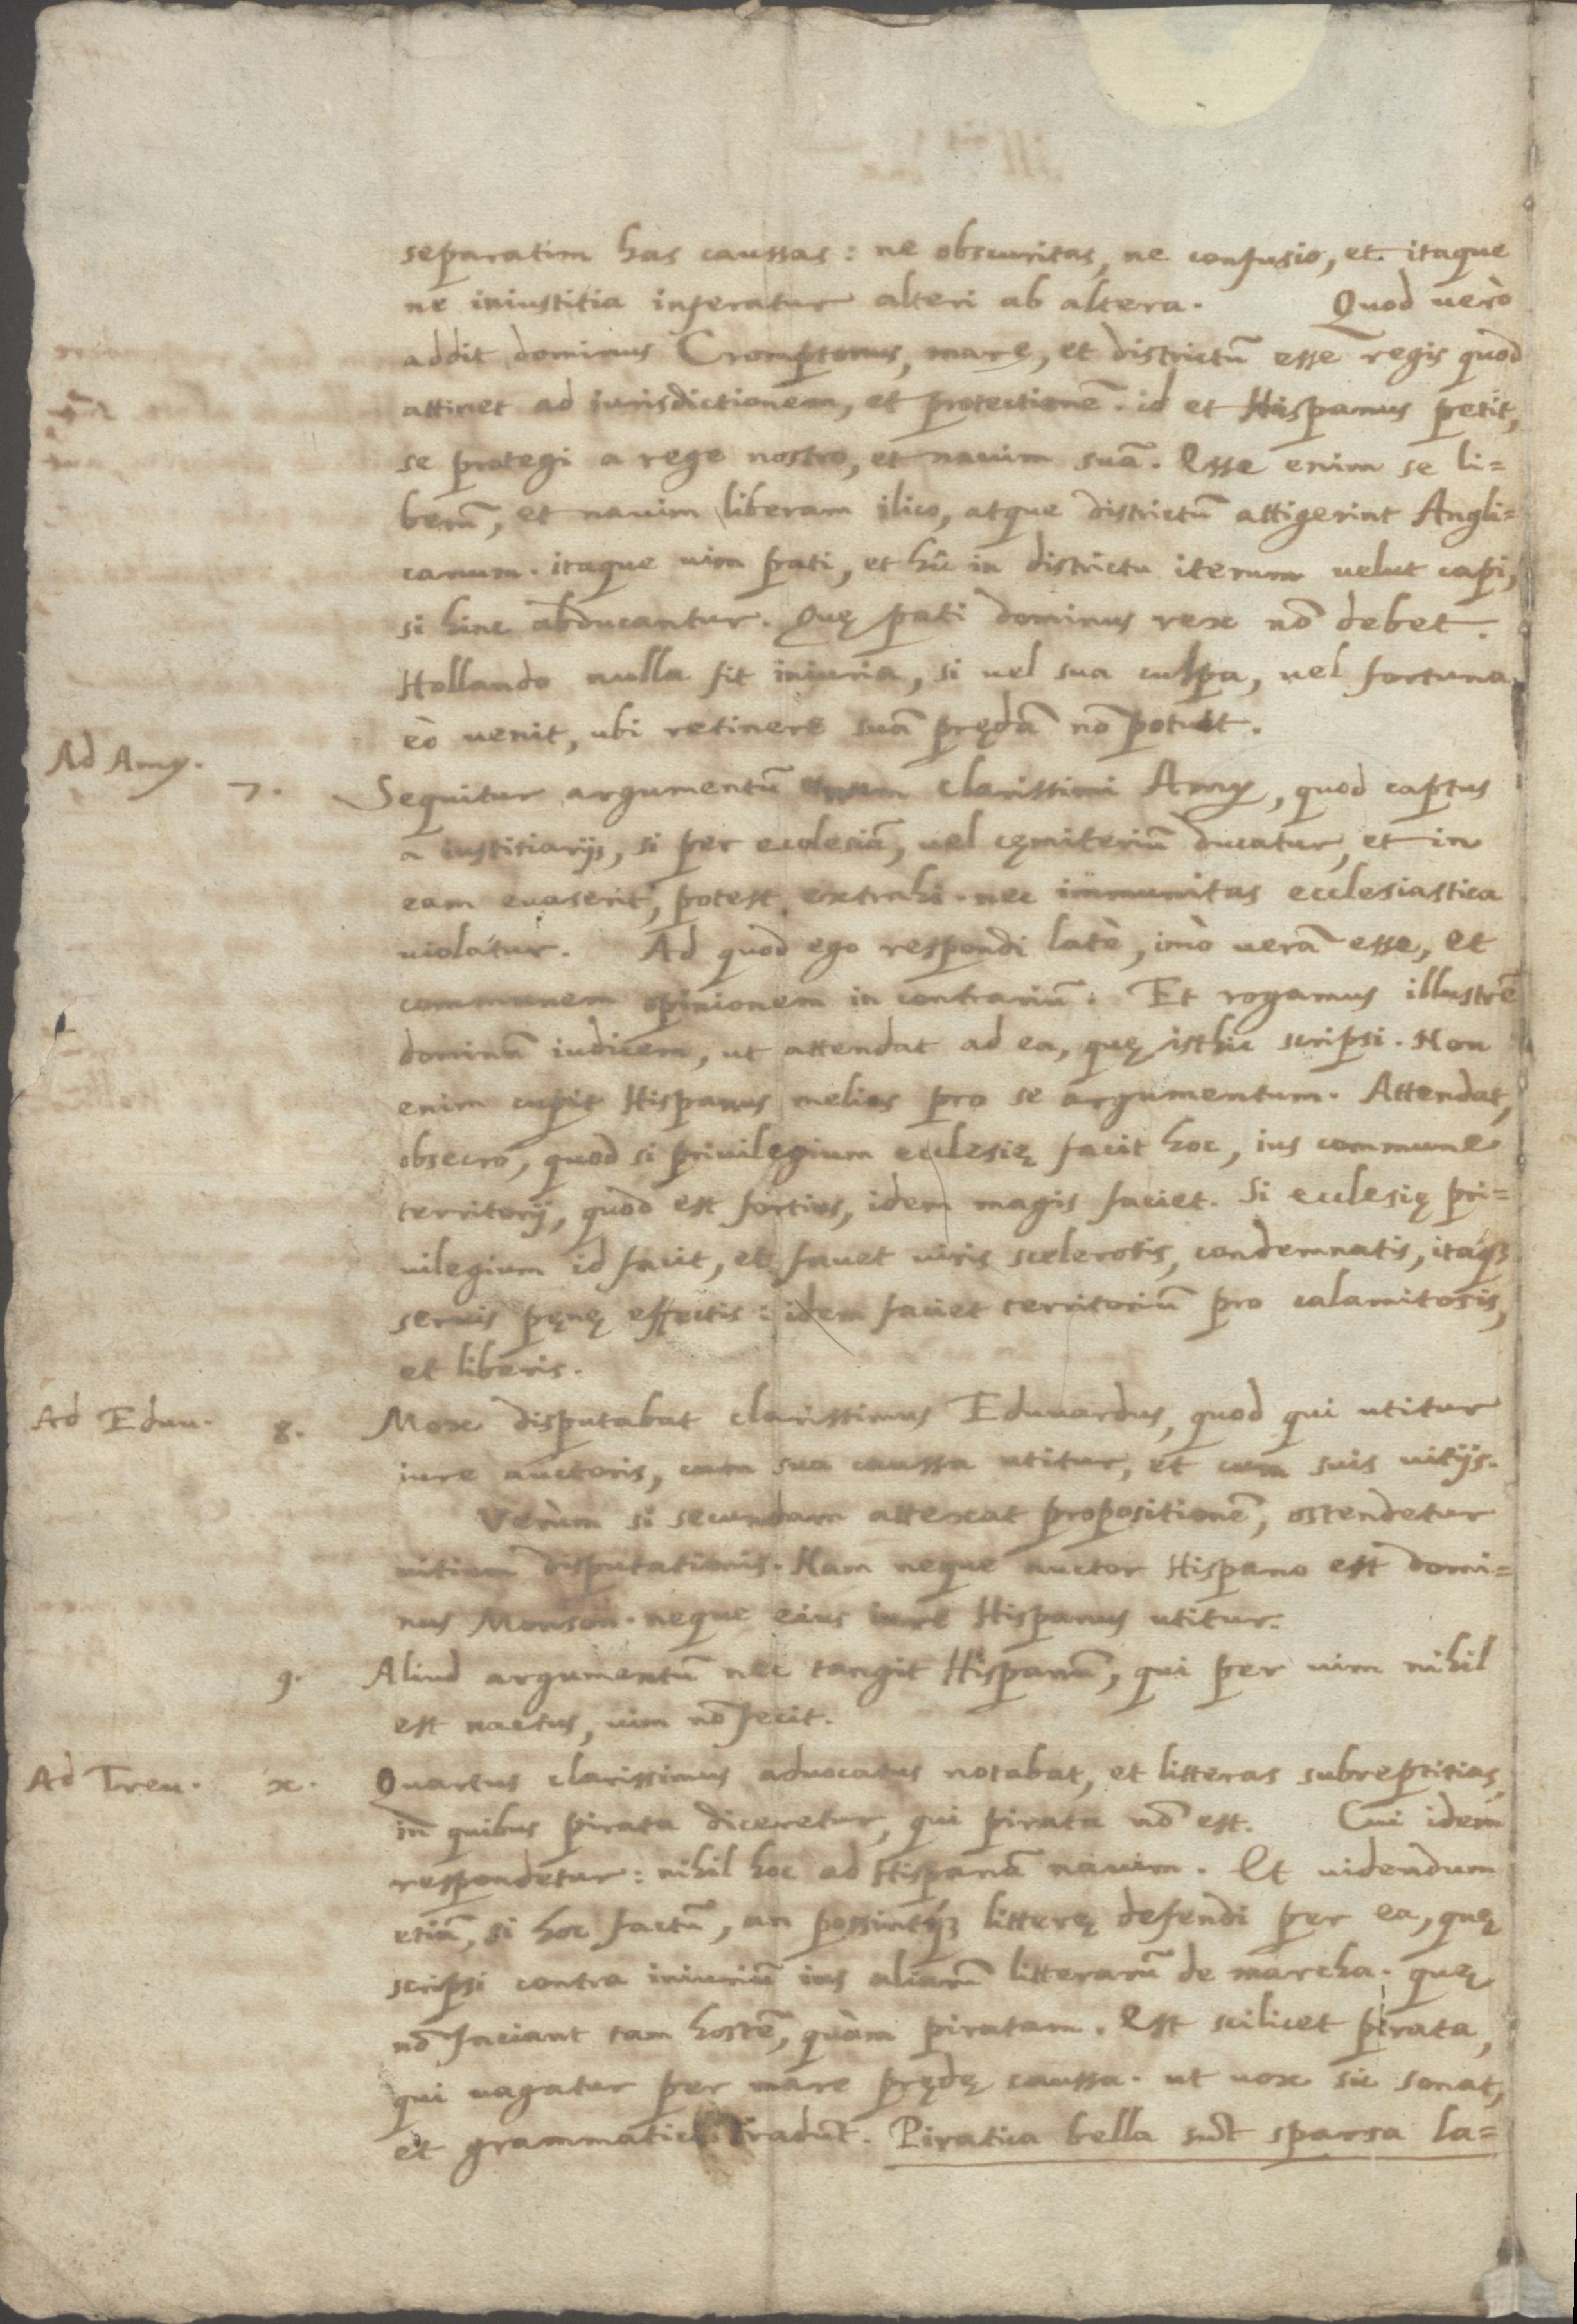 separatim has caussas: ne obscuritas, ne confusio, et itaque
ne iniustitia inferatur alteri ab altera. Quod uerò
addit dominus Cromptonus, mare, et districtũ esse regis quod
attinet ad iurisdictionem, et protectionẽ. id et Hispanus petit,
se protegi a rege nostro, et nauim suã. Esse enim se li=
berũ, et nauim liberam ilico, atque districtũ attigerint Angli=
canum. itaque uim pati, et hîc in districtu iterum uelut capi,
si hinc abducantur. Quę pati dominus rex nõ debet.
Hollando nulla fit iniuria, si uel sua culpa, uel fortuna
eò uenit, ubi retinere suã prędã nõ potuit.
Ad Amy. 7. Sequitur argumentũ clarissimi Amy, quod captus
a iustitiarijs, si per ecclesiã, uel cęmiteriũ ducatur, et in
eam euaserit, potest extrahi. nec immunitas ecclesiastica
uiolatur. Ad quod ego respondi latè, imò uerã esse, et
communem opinionem in contrariũ. Et rogamus illustrẽ
dominũ iudicem, ut attendat ad ea, quę isthic scripsi. Non
enim cupit Hispanus melius pro se argumentum. Attendat,
obsecro, quod si priuilegium ecclesię facit hoc, ius commune
territorij, quod est fortius, idem magis faciet. Si ecclesię pri=
uilegium id facit, et fauet uiris scelerosis, condemnatis, itaq3
seruis pęnę effectis: idem faciet territoriũ pro calamitosis,
et liberis.
Ad Eduu. 8. Mox disputabat clarissimus Eduuardus, quod qui utitur
iure auctoris, cum sua caussa utitur, et cum suis uitijs.
Verùm si secundam attexat propositionẽ, ostendetur
uitium disputationis. Nam neque auctor Hispano est domi=
nus Monson. neque eius iure Hispanus utitur.
9. Aliud argumentũ nec tangit Hispanũ, qui per uim nihil
est nactus, uim nõ fecit.
Ad Treu. x. Quartus clarissimus aduocatus notabat, et litteras subreptitias,
in quibus pirata diceretur, qui pirata nõ est. Cui idem
respondetur: nihil hoc ad Hispanã nauim. Et uidendum
etiã, si hoc factũ, an possintq3 litterę defendi per ea, quę
scripsi contra iniuriũ ius aliarũ litterarũ de marcha. quę
nõ faciant tam hostẽ, quàm piratam. Est scilicet pirata,
qui uagatur per mare prędę caussa. ut uox sic sonat,
et grammatici tradũt. Piratica bella sũt sparsa la=